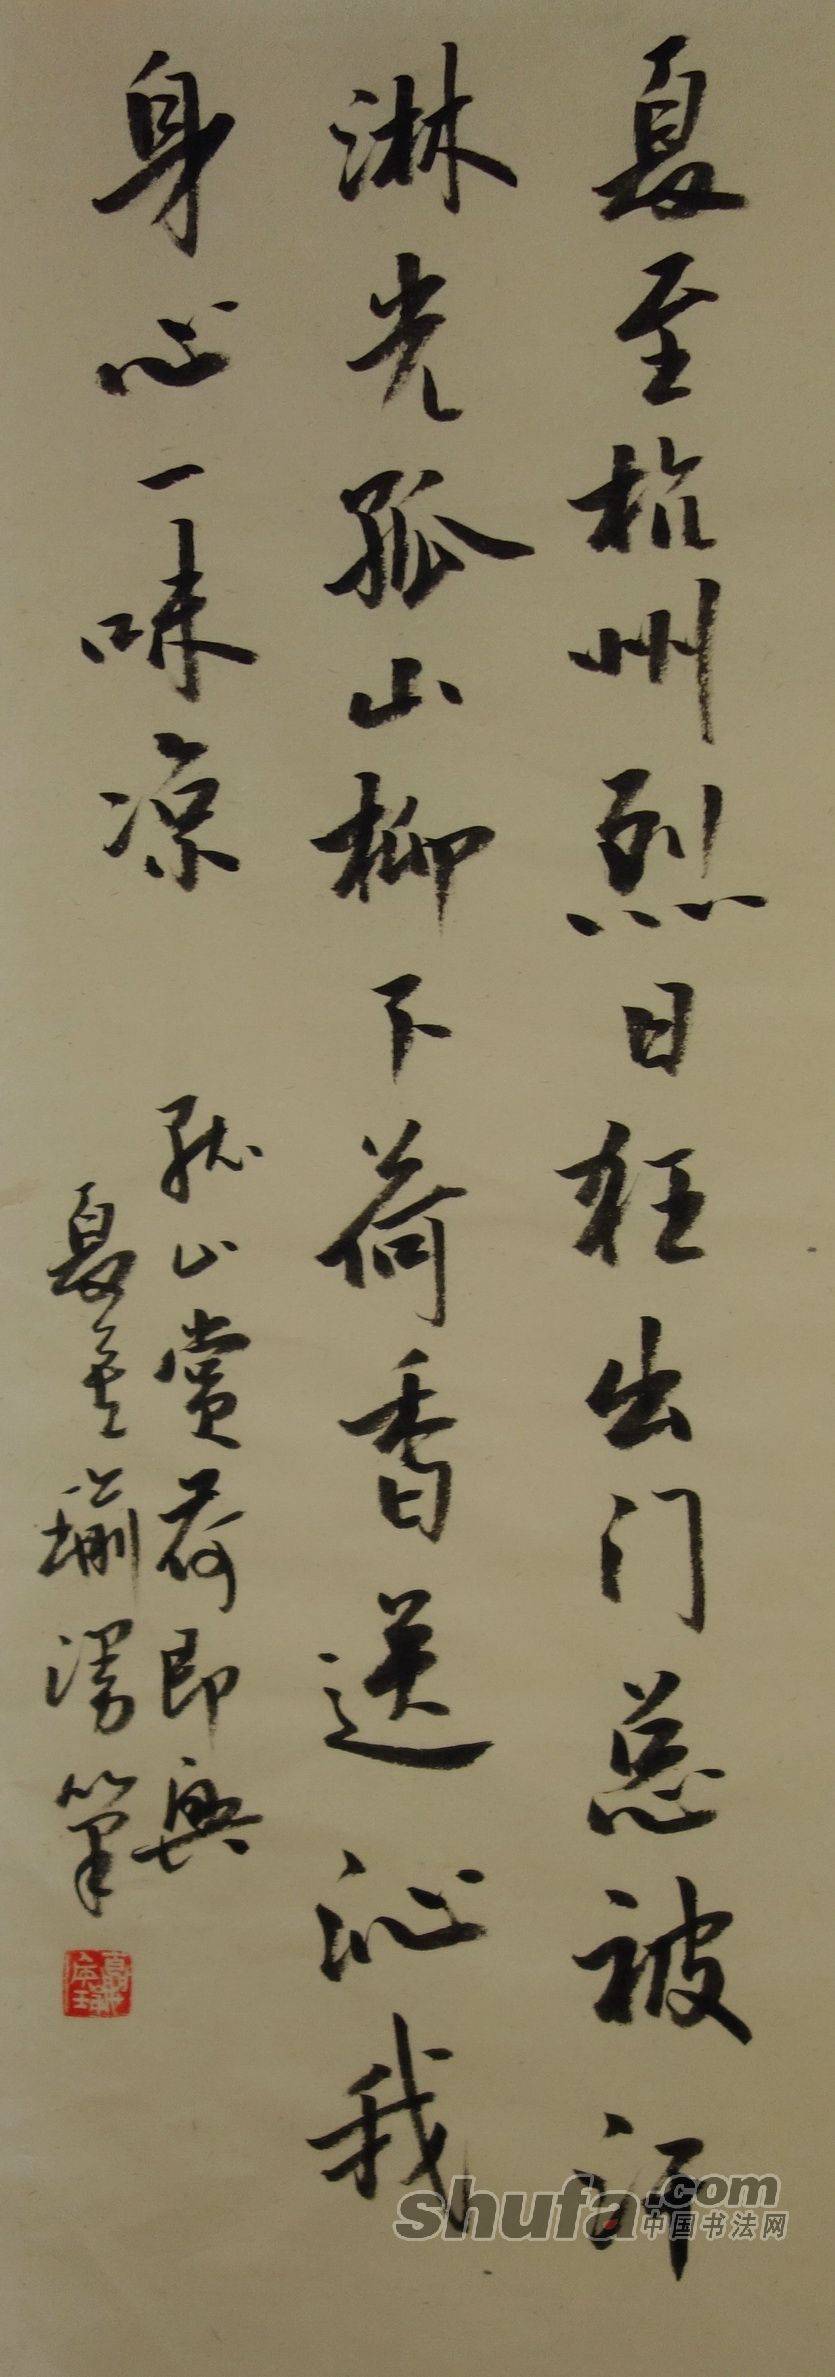 夏至杭州烈日狂出门总被
淋光孤山柳下荷香送沁我
身心一味凉
孤山赏荷即兴
夏 瑜漫笔
shufa.com
中国书法网